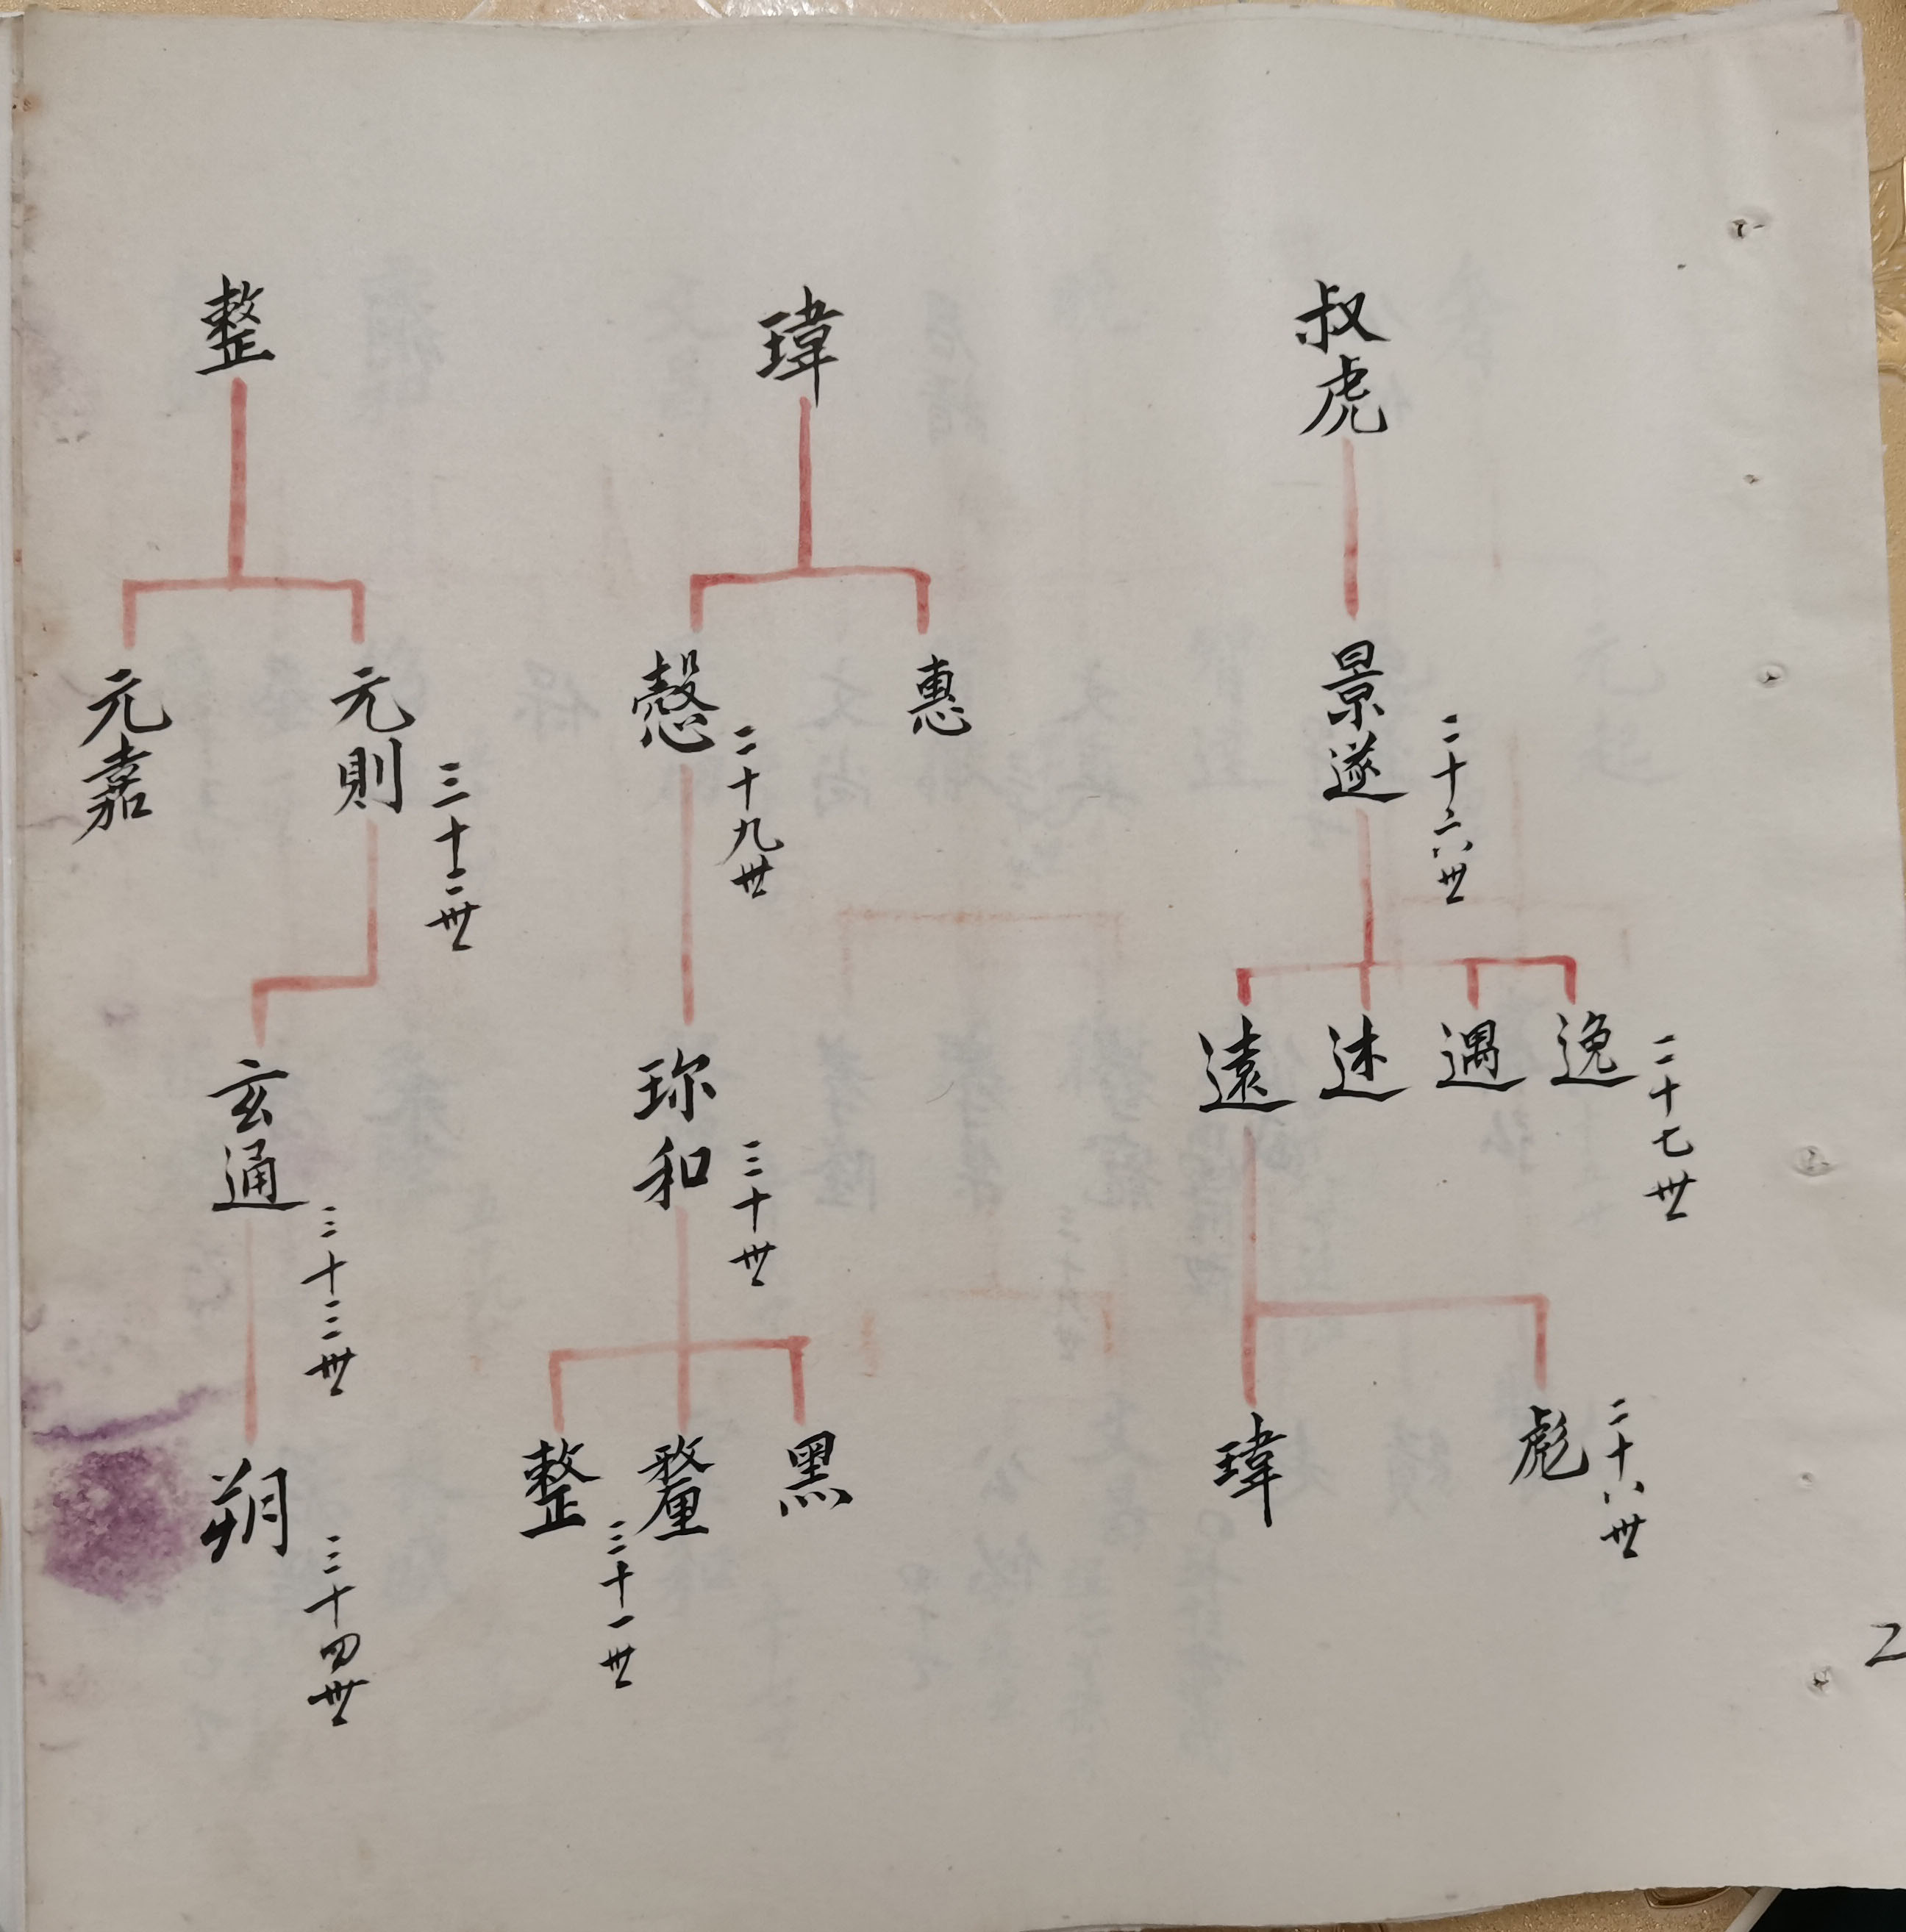 叔虎
景遂
二十六世
逸
遇
述
遠
二十七世
彪
二十八世
瑋
瑋
惠
愨
二十九世
珎和
三十世
黑
釐
整
三十一世
整
元則
三十二世
元嘉
玄通
三十三世
朔
三十四世
2